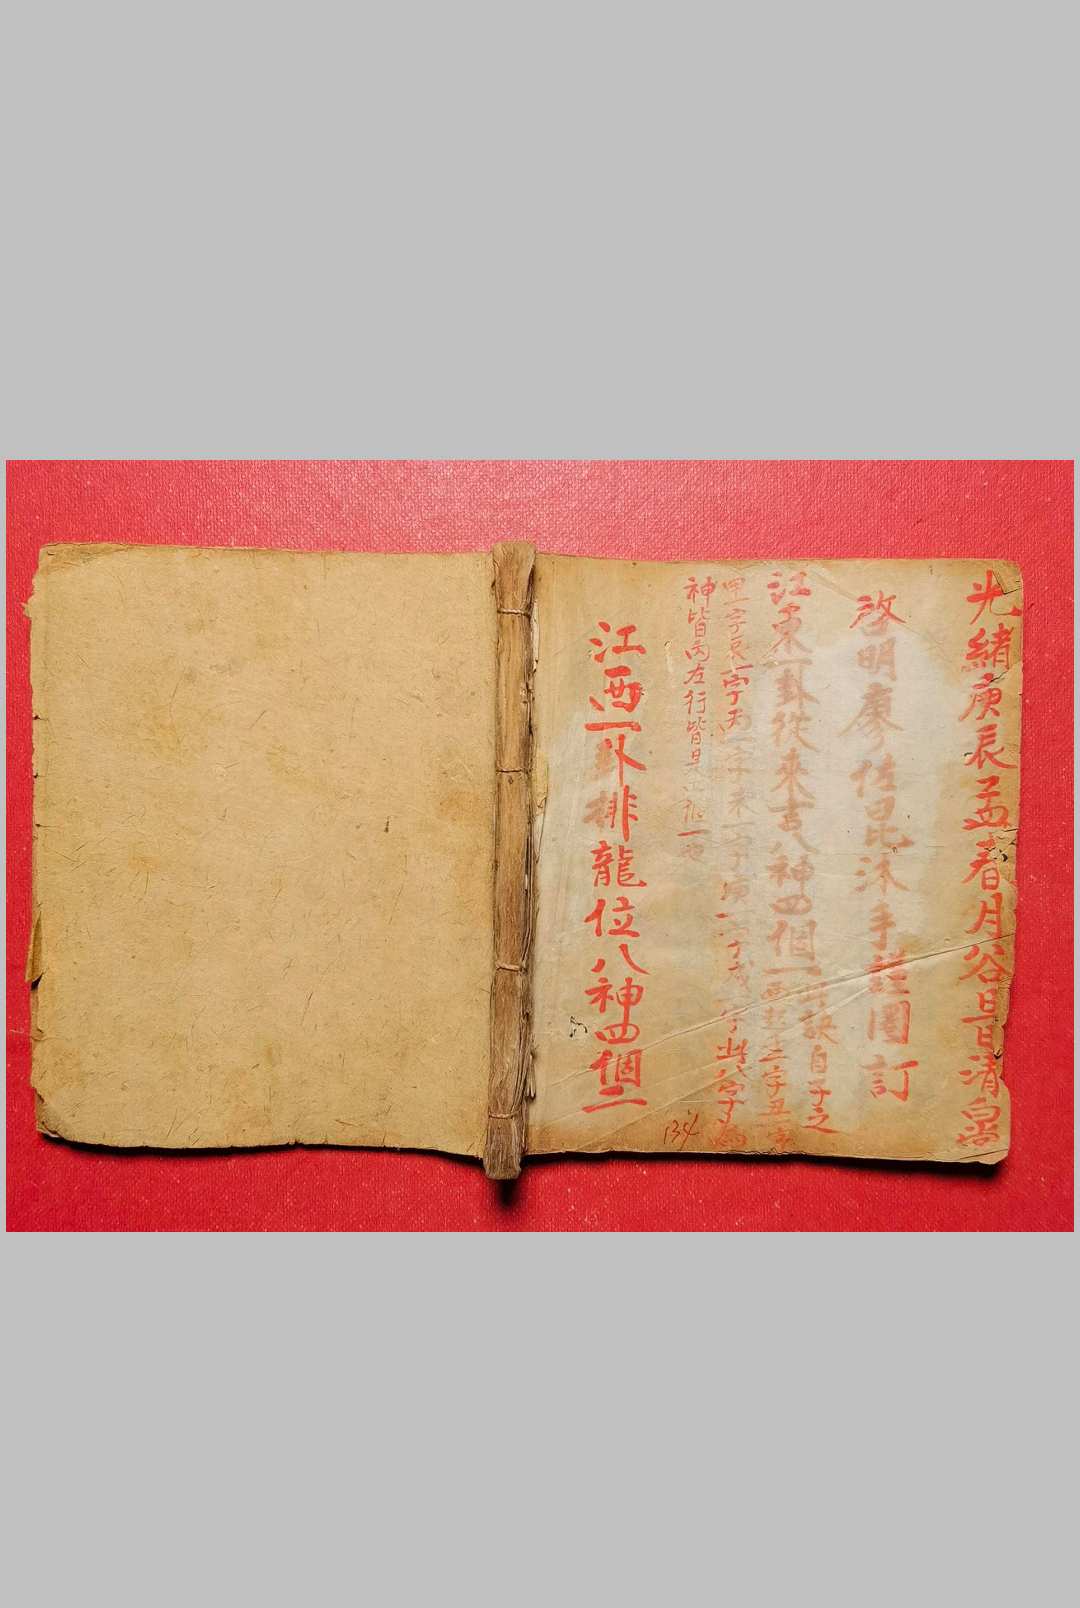 光緒庚辰孟春月谷旦清泉
啓明廖佐昆沐手謹圈訂
江東一卦從來吉八神四個一
訣自子之
甲一字艮一字丙一字未一字庚一字戌一字此八字為
神皆丙左行皆是
江西一卦排龍位八神四個二
134